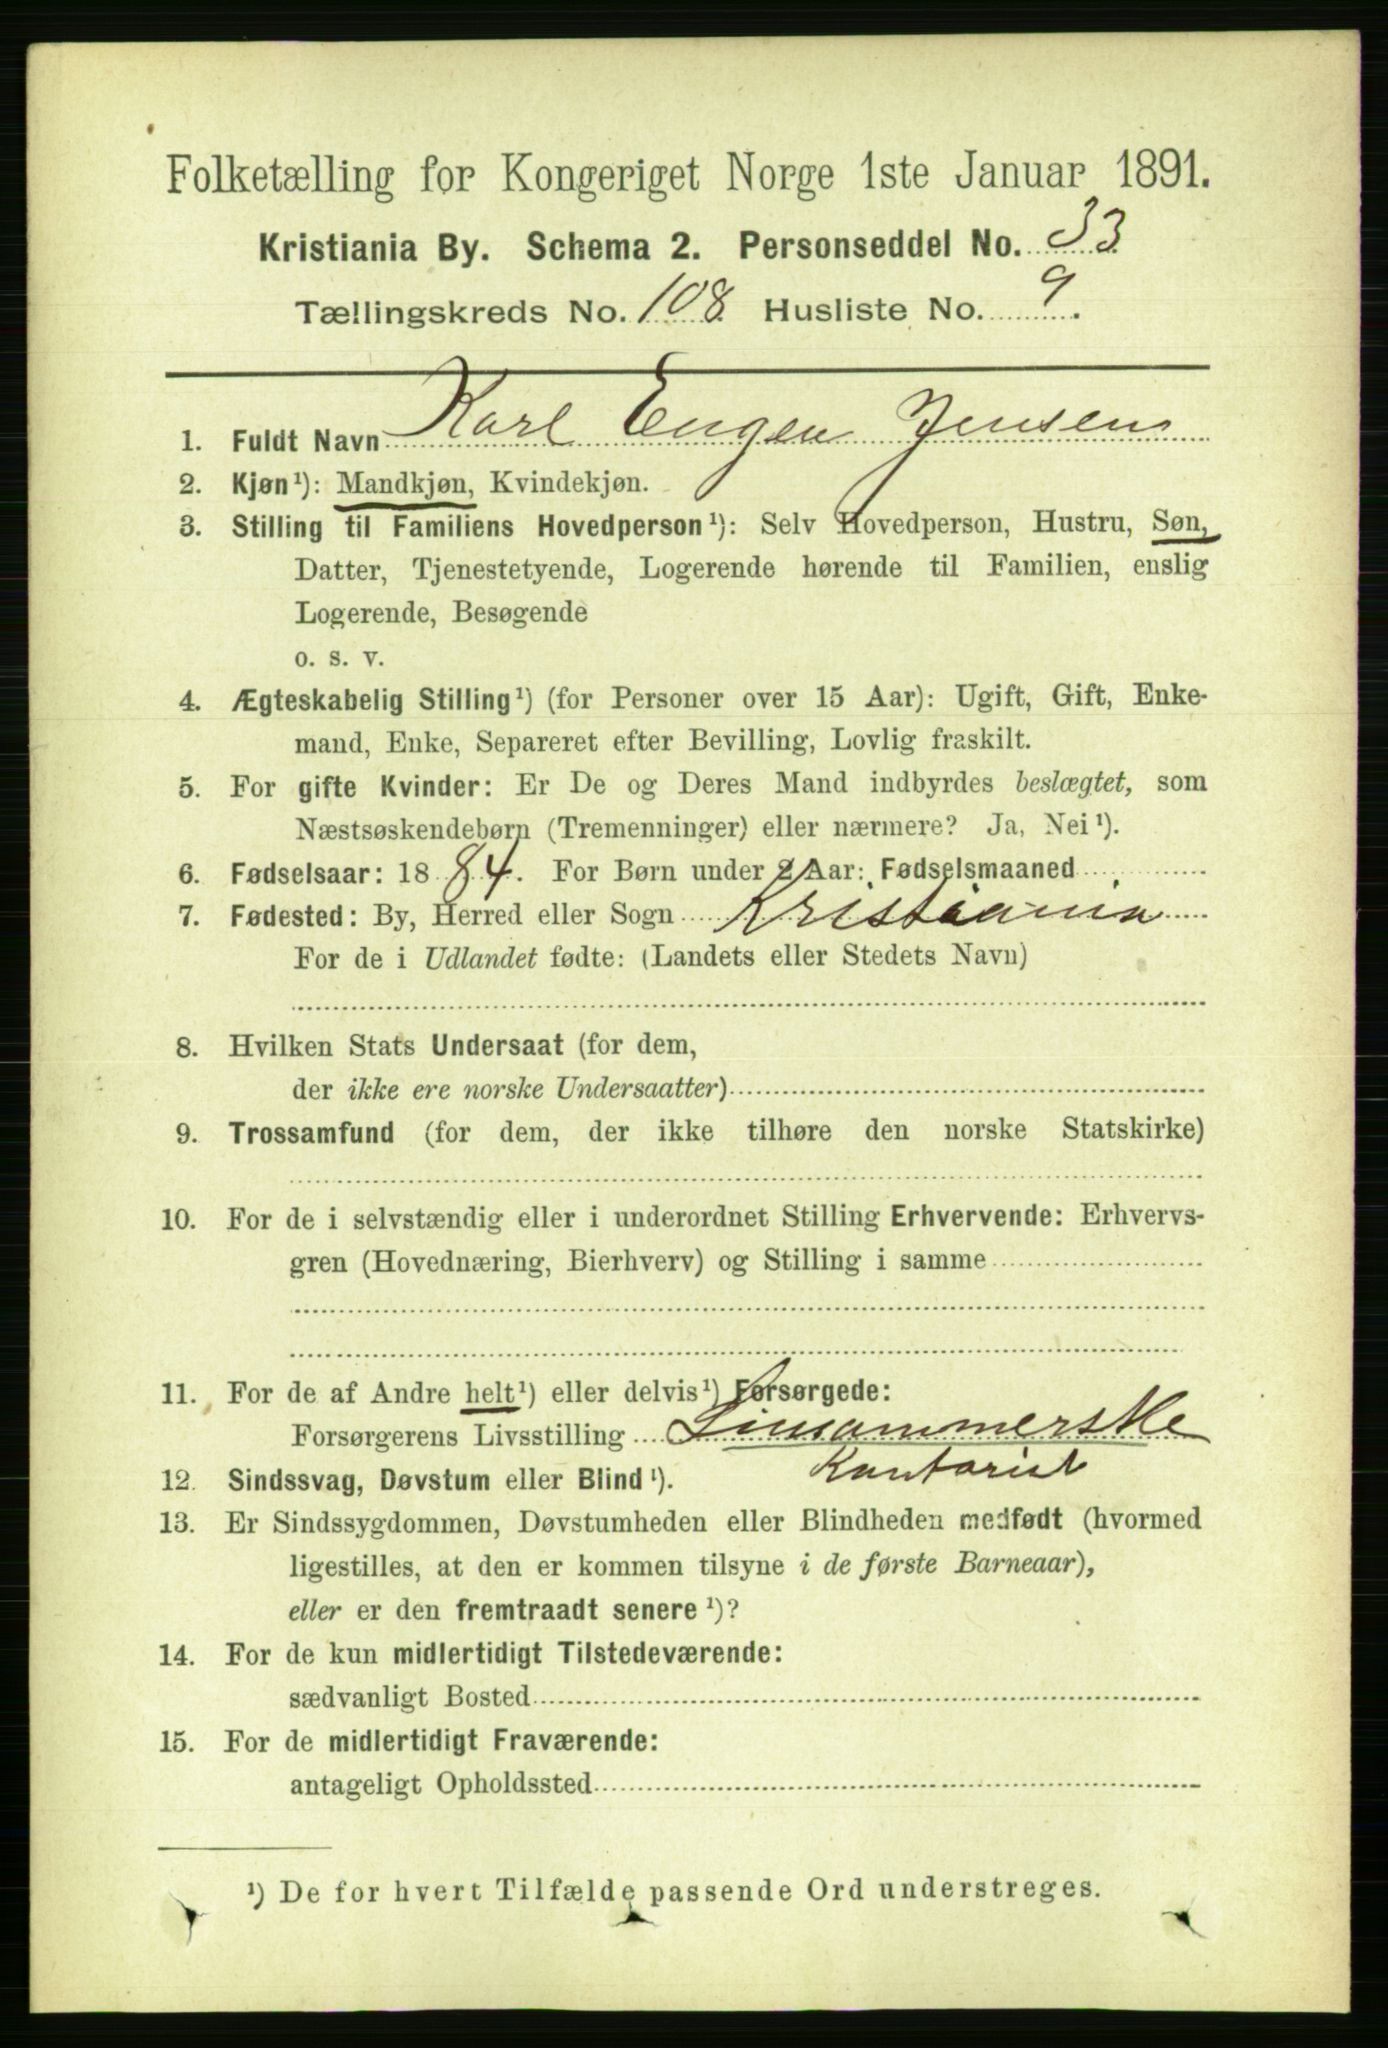 Folketælling for Kongeriget Norge 1ste Januar 1891.
Kristiania By. Schema 2. Personseddel No. 33
Tællingskreds No. 108 Husliste No. 9.
1. Fuldt Navn Karl Eugen Jensen
2. Kjøn¹): Mandkjøn, Kvindekjøn.
3. Stilling til Familiens Hovedperson¹): Selv Hovedperson, Hustru, Søn,
Datter, Tjenestetyende, Logerende hørende til Familien, enslig
Logerende, Besøgende
o. s. v.
4. Ægteskabelig Stilling¹) (for Personer over 15 Aar): Ugift, Gift, Enke-
mand, Enke, Separeret efter Bevilling, Lovlig fraskilt.
5. For gifte Kvinder: Er De og Deres Mand indbyrdes beslægtet, som
Næstsøskendebørn (Tremenninger) eller nærmere? Ja, Nei¹).
6. Fødselsaar: 1884. For Børn under 2 Aar: Fødselsmaaned
7. Fødested: By, Herred eller Sogn Kristiania
For de i Udlandet fødte: (Landets eller Stedets Navn)
8. Hvilken Stats Undersaat (for dem,
der ikke ere norske Undersaatter)
9. Trossamfund (for dem, der ikke tilhøre den norske Statskirke)
10. For de i selvstændig eller i underordnet Stilling Erhvervende: Erhvervs-
gren (Hovednæring, Bierhverv) og Stilling i samme
11. For de af Andre helt¹) eller delvis¹) Forsørgede:
Forsørgerens Livsstilling Linsømmerske
Kontorist
12. Sindssvag, Døvstum eller Blind¹).
13. Er Sindssygdommen, Døvstumheden eller Blindheden medfødt (hvormed
ligestilles, at den er kommen tilsyne i de første Barneaar),
eller er den fremtraadt senere¹)?
14. For de kun midlertidigt Tilstedeværende:
sædvanligt Bosted
15. For de midlertidigt Fraværende:
antageligt Opholdssted
¹) De for hvert Tilfælde passende Ord understreges.